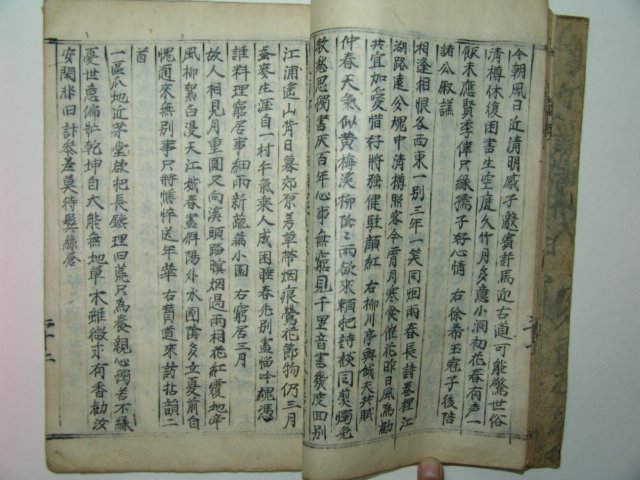 今朝風日近清明感子邀賓許馬迎古道可能驚世俗
清樽休復困書生空庭久竹月多意小洞初花春有声一
飯未應賢季偉只緣孺子好心情 右徐希玉冠子後陪
諸公敍謠
相逢相恨各西東一別三年一笑同烟雨春長詩巷裡江
湖路遠公塊中清樽照客今宵月寒食催花昨日風爲勸
共宜加愛惜好將強健駐韻紅 右柳川亭與城夫共賦
仲春天氣似黃梅溪柳陰陰雨欲來賴把詩談同剪燭免
教愁思獨書灰百年心事無窮見千里音書幾度回別
江浦遙山背日暮郊賀芳草帶烟痕鶯花節物仍三月
蚕麥生涯自一村午氣來人咸困睡春光別盡惱吟魂憑
誰料理窮居事細雨新蔬滿小園 右窮居三月
故人相見月重圓又向溪頭路暝烟過雨相花紅覆地牽
風柳絮白漫天江城春盡斜陽外水國陰多立夏前自
愧邇來無別事只將憔悴送年華 右費道來訪拈韻二
首
一區瓜地近茅堂欲把長鋤理旧荒只爲養親心獨苦不緣
憂世意偏忙乾坤自大能無地草木雖微亦有香勸汝
安閑非旧計參差莫待鬢絲蒼
二十二